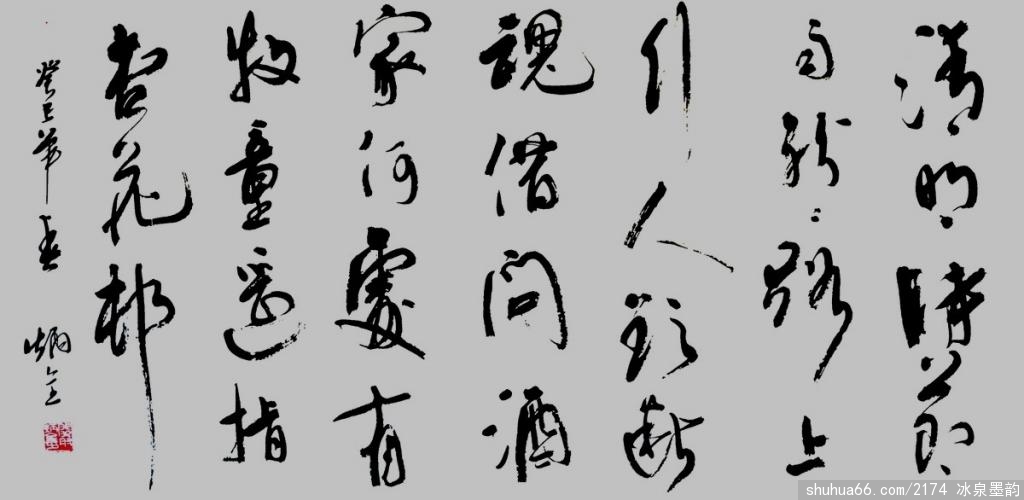 清明時節
雨紛〻路上
行人欲斷
魂借問酒
家何處有
牧童遥指
杏花邨
癸巳年春 炳全
shuhua66.com/2174 冰泉墨韵